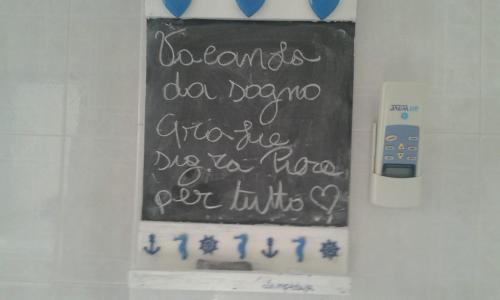 Vacanza
da sogno
Grazie
sig.ra Piera
per tutto ♡
Lampedusa